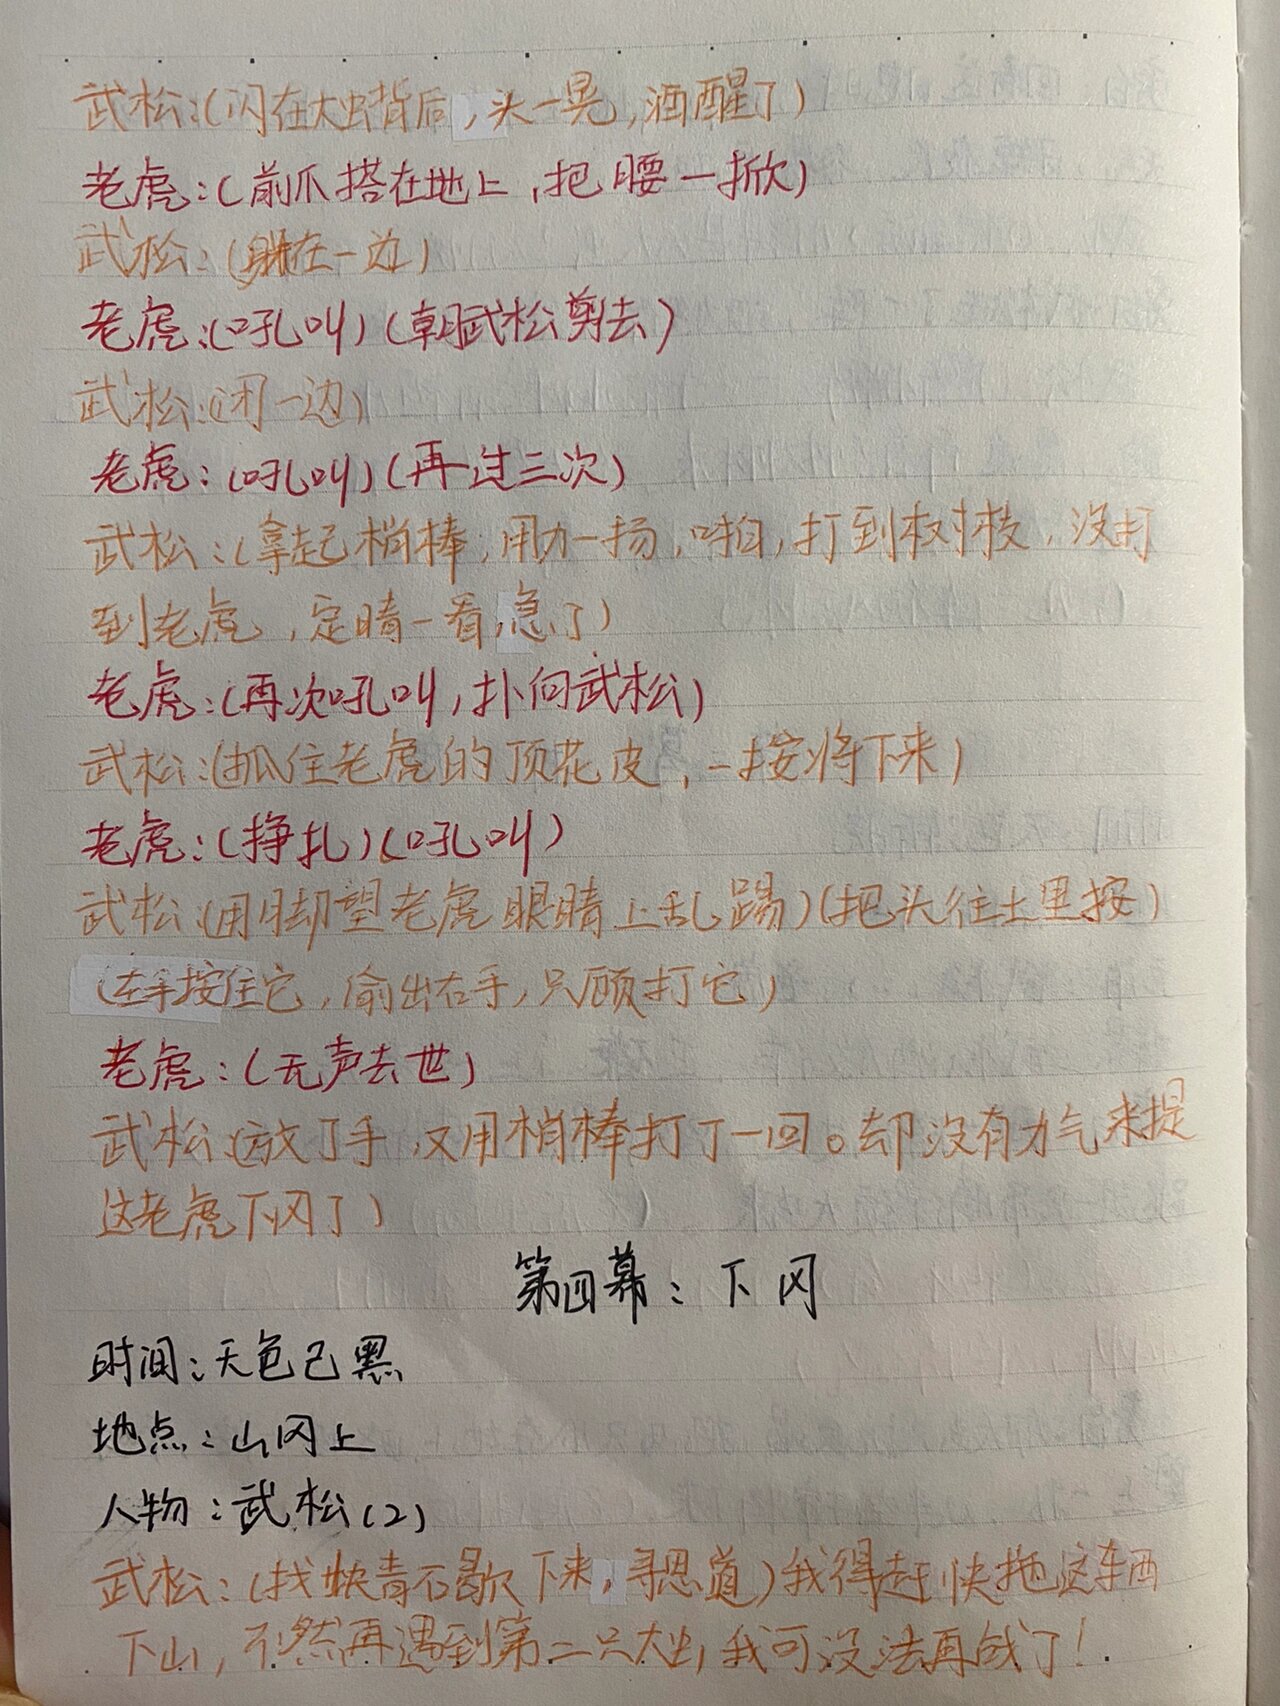 武松:(闪在大虫背后,头一晃,酒醒了)
老虎:(前爪搭在地上,把腰一掀)
武松:(躲在一边)
老虎:(吼叫)(朝武松剪去)
武松:(闭一边)
老虎:(吼叫)(再一过三次)
武松:(拿起梢棒,用力一扬,啪,打到树枝,没打
到老虎,定睛一看,急了)
老虎:(再次吼叫,扑向武松)
武松:(抓住老虎的顶花皮,一按将下来)
老虎:(挣扎)(吼叫)
武松:(用脚望老虎眼睛上乱踢)(把头往土里按)
(左手按住它,偷出右手,只顾打它)
老虎:(无声去世)
武松:(放了手,又用梢棒打了一回。却没有力气来提
这老虎下冈了)
第四幕:下冈
时间:天色己黑
地点:山冈上
人物:武松(2)
武松:(找快青石歇下来,寻思道)我得赶快拖这东西
下山,不然再遇到第二只大虫,我可没法再战了!